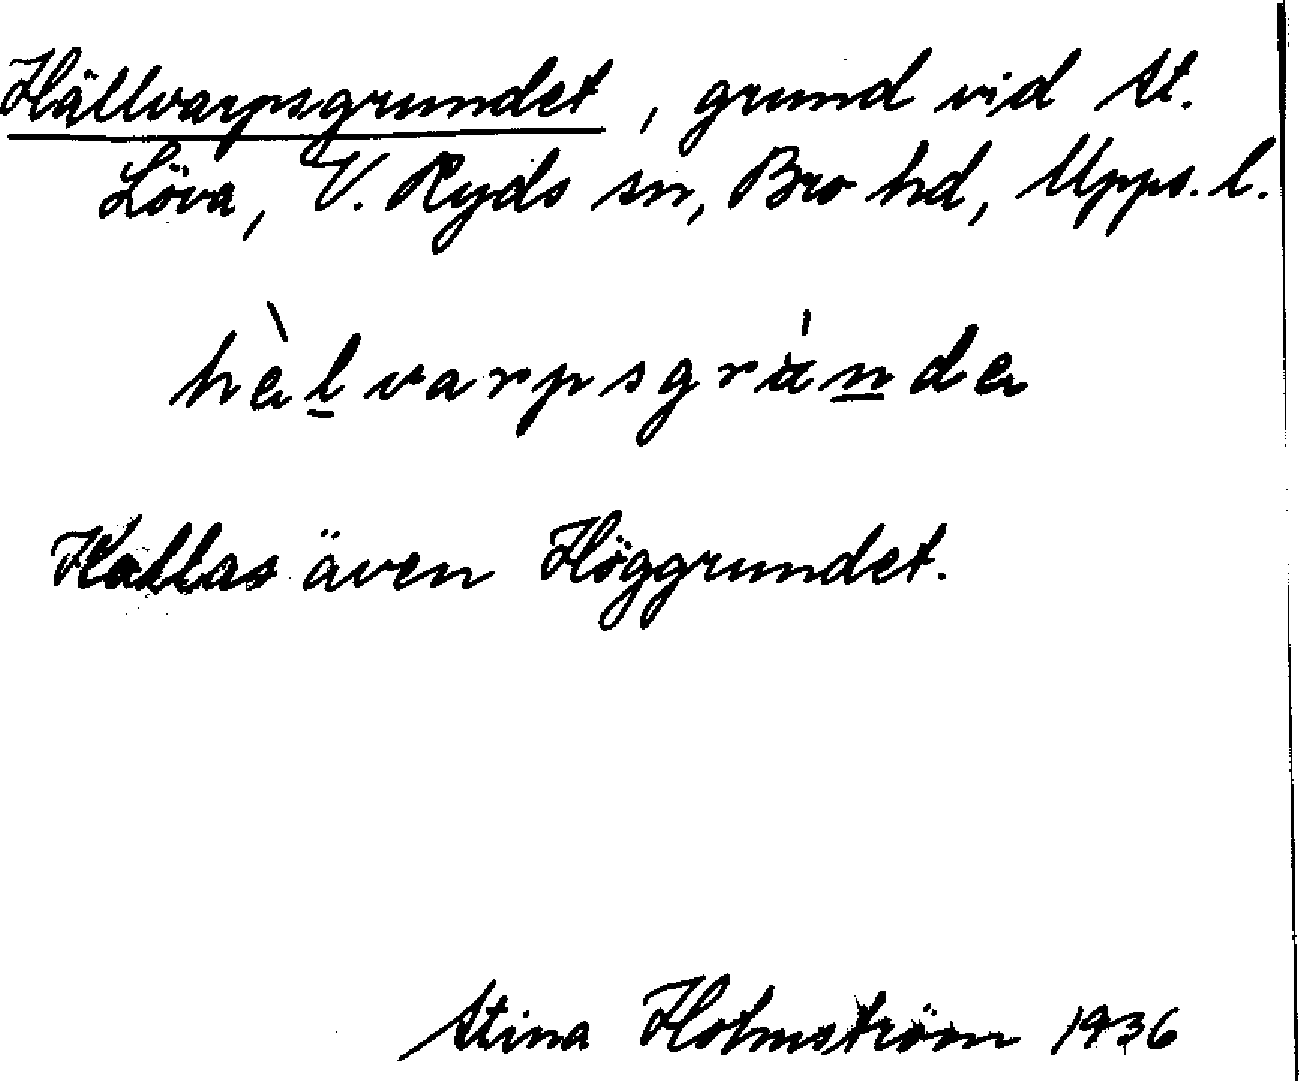 Hällvarpsgrundet, grund vid St.
Löva, V. Ryds sn, Bro hd, Upps. l.
hèlvarpsgrúnda
Kallas även Höggrundet.
Stina Holmström 1936